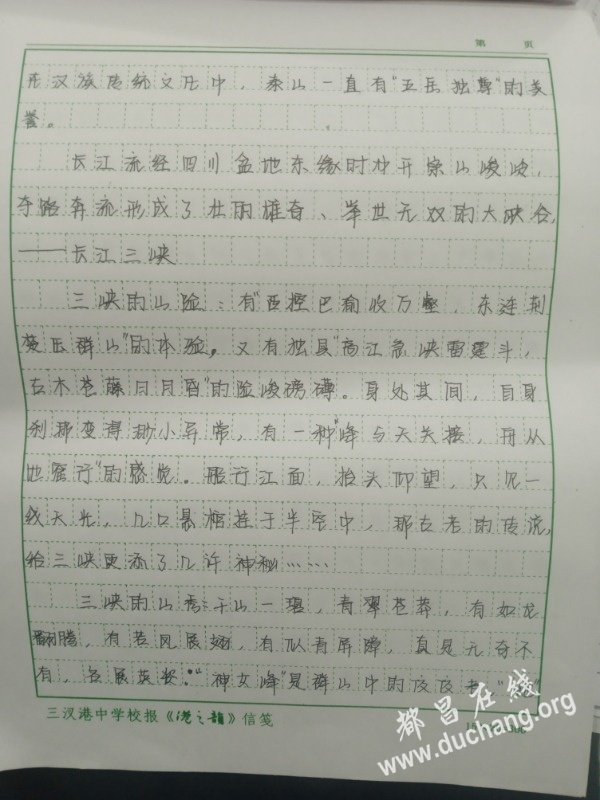 第 页
在汉族传统文化中，泰山一直有"五岳独尊"的美
誉。
长江流经四川盆地东缘时冲开崇山峻岭，
夺路奔流形成了壮丽雄奇、举世无双的大峡谷，
——长江三峡
三峡的山险：有"西控巴渝收万壑，东连荆
楚压群山"的体验。又有独具"高江急峡雷霆斗，
古木苍藤日月昏"的险峻磅礴。身处其间，自身
刹那变得渺小异常，有一种"峰与天关接，舟从
地窟行"的感觉。船行江面，抬头仰望，只见一
线天光，几口悬棺挂于半空中，那古老的传说，
给三峡更添了几许神秘……
三峡的山秀：千山一碧，青翠苍莽，有如龙
翻腾，有若凤展翅，有似青屏障，真是无奇不
有，各展英姿。"神女峰"是群山中的佼佼者，
三汊港中学校报《港之韵》信笺
都昌在线
www.duchang.org